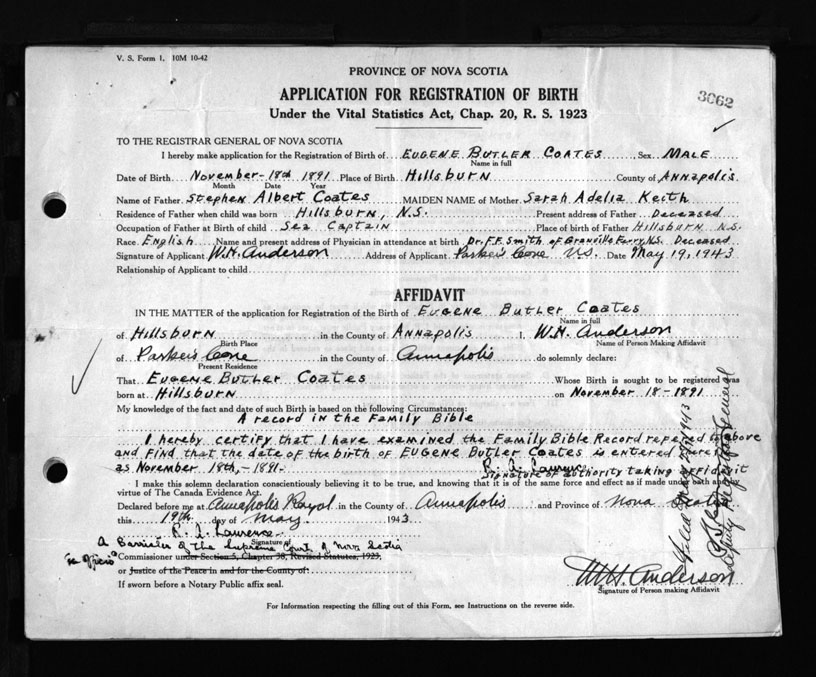 V. S. Form 1. 10M 10-42
PROVINCE OF NOVA SCOTIA
3062
APPLICATION FOR REGISTRATION OF BIRTH
Under the Vital Statistics Act, Chap. 20, R. S. 1923
TO THE REGISTRAR GENERAL OF NOVA SCOTIA
I hereby make application for the Registration of Birth of EUGENE BUTLER COATES Sex MALE
Name in full
Date of Birth November-18th 1891 Place of Birth Hillsburn County of Annapolis
Month Date Year
Name of Father Stephen Albert Coates MAIDEN NAME of Mother Sarah Adelia Keith
Residence of Father when child was born Hillsburn, N.S. Present address of Father Deceased
Occupation of Father at Birth of child Sea Captain Place of birth of Father Hillsburn N.S.
Race English Name and present address of Physician in attendance at birth Dr. F.F. Smith of Granville Ferry, N.S. Deceased
Signature of Applicant W.H. Anderson Address of Applicant Parker's Cove N.S. Date May 19, 1943
Relationship of Applicant to child
AFFIDAVIT
IN THE MATTER of the application for Registration of the Birth of EUGENE Butler Coates
Name in full
of Hillsburn in the County of Annapolis I, W.H. Anderson
Birth Place Name of Person Making Affidavit
of Parker's Cove in the County of Annapolis do solemnly declare:
Present Residence
That EUGENE BUTLER COATES Whose Birth is sought to be registered was
born at Hillsburn on November 18-1891
My knowledge of the fact and date of such Birth is based on the following Circumstances:
A record in the Family Bible
I hereby certify that I have examined the Family Bible Record referred to above
and find that the date of the birth of EUGENE Butler Coates is entered therein
as November 18th,-1891-
R. A. Lawrence
Signature of authority taking affidavit
I make this solemn declaration conscientiously believing it to be true, and knowing that it is of the same force and effect as if made under oath by
virtue of The Canada Evidence Act.
Declared before me at Annapolis Royal in the County of Annapolis and Province of Nova Scotia
this 19th day of May 1943
R. A. Lawrence
Signature of
A Barrister of the Supreme Court of Nova Scotia
Commissioner under Section 5, Chapter 38, Revised Statutes, 1923,
or Justice of the Peace in and for the County of:
If sworn before a Notary Public affix seal.
W.H. Anderson
Signature of Person making Affidavit
For Information respecting the filling out of this Form, see Instructions on the reverse side.
Filed May 1943
Deputy Registrar General